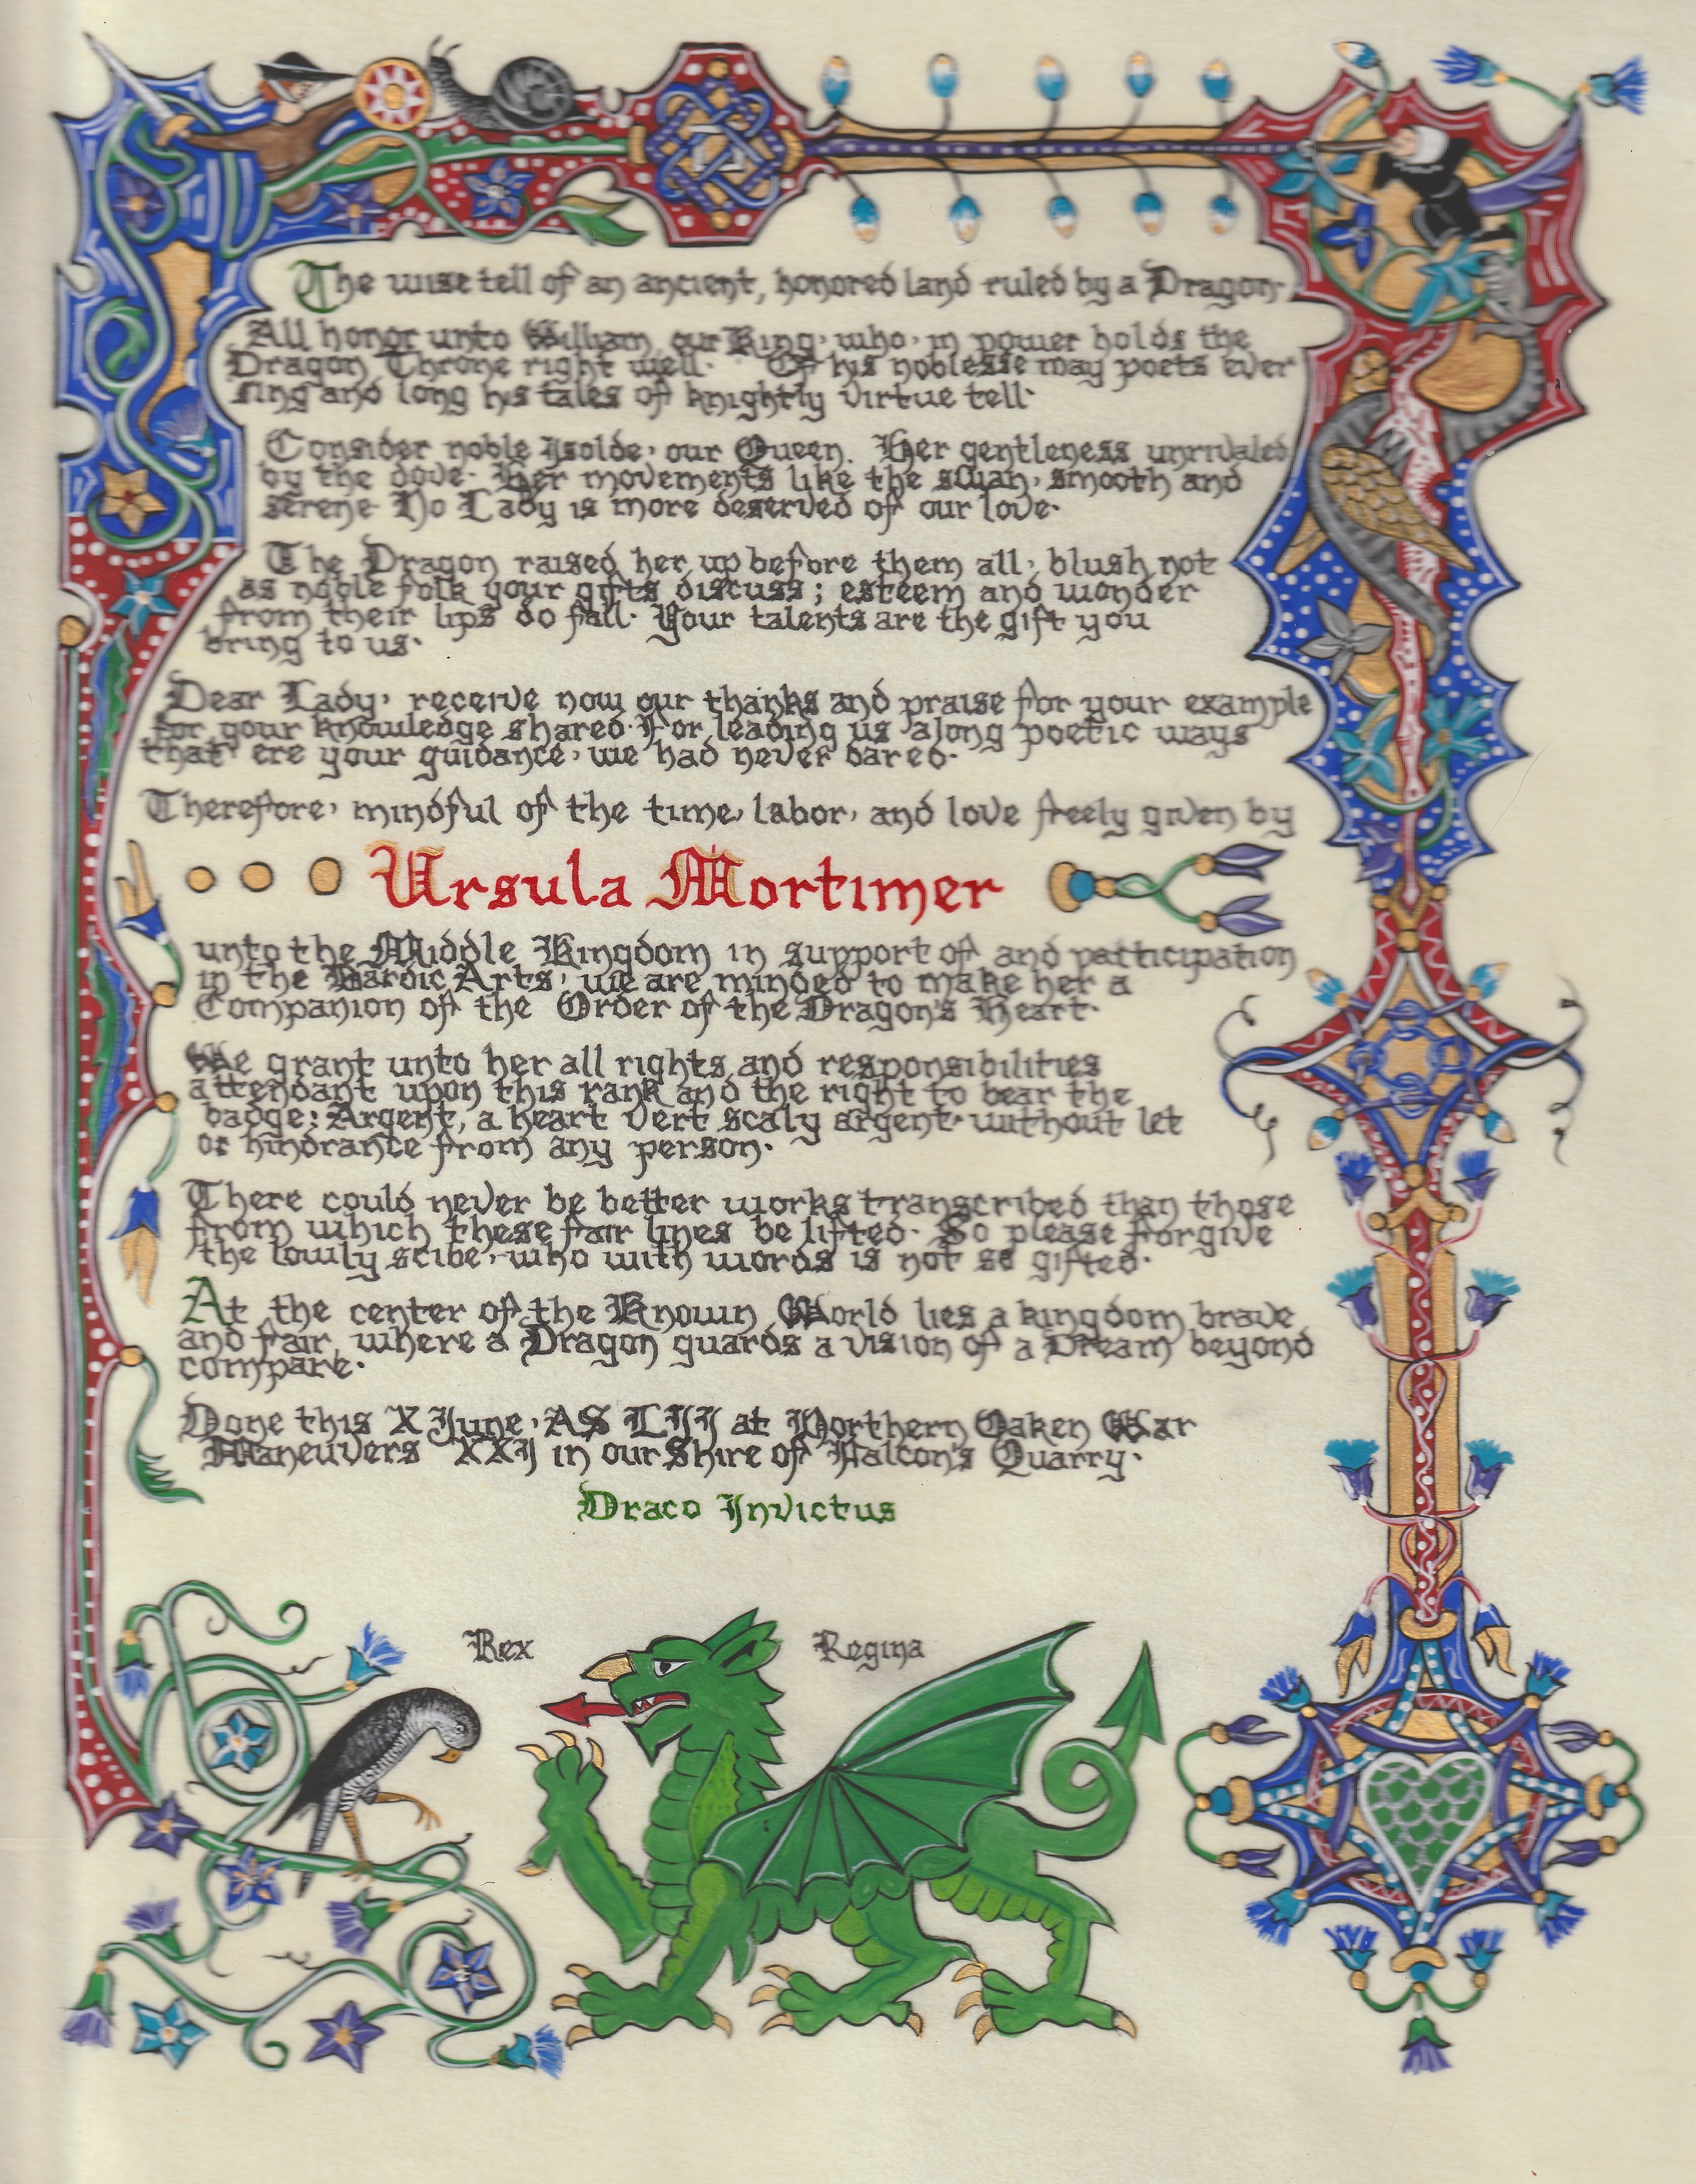 The wise tell of an ancient, honored land ruled by a Dragon.
All honor unto William, our King, who, in power holds the
Dragon Throne right well. Of his noblesse may poets ever
sing and long his tales of knightly virtue tell.
Consider noble Isolde, our Queen. Her gentleness unrivaled
by the dove. Her movements like the swan, smooth and
serene. No Lady is more deserved of our love.
The Dragon raised her up before them all, blush not
as noble folk your gifts discuss; esteem and wonder
from their lips do fall. Your talents are the gift you
bring to us.
Dear Lady, receive now our thanks and praise for your example
for your knowledge shared. For leading us along poetic ways
that, ere your guidance, we had never dared.
Therefore, mindful of the time, labor, and love freely given by
Ursula Mortimer
unto the Middle Kingdom in support of and patticipation
in the Bardic Arts, we are minded to make her a
Companion of the Order of the Dragon's Heart.
We grant unto her all rights and responsibilities
attendant upon this rank and the right to bear the
badge: Argent, a heart vert scaly argent. without let
or hindrance from any person.
There could never be better works transcribed than those
from which these fair lines be lifted. So please forgive
the lowly scibe, who with words is not so gifted.
At the center of the Known World lies a kingdom brave
and fair, where a Dragon guards a vision of a Dream beyond
compare.
Done this X June, AS LIII at Northern Oaken War
Maneuvers XXI in our Shire of Falcon's Quarry.
Draco Invictus
Rex Regina